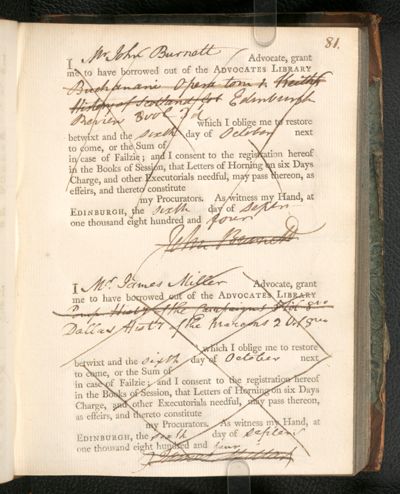 81.
I Mr John Burnett Advocate, grant
me to have borrowed out of the ADVOCATES LIBRARY
Buchanani Opera tom 1. Keith's
History of Scotland Edinburgh
Review 3 vol 8vo
which I oblige me to restore
betwixt and the sixth day of October next
to come, or the Sum of
in case of Failzie; and I consent to the registration hereof
in the Books of Session, that Letters of Horning on six Days
Charge, and other Executorials needful, may pass thereon, as
effeirs, and thereto constitute
my Procurators. As witness my Hand, at
EDINBURGH, the sixth day of Septem
one thousand eight hundred and four
John Burnett
I Mr. James Miller Advocate, grant
me to have borrowed out of the ADVOCATES LIBRARY
Hist of the Campaigns 8vo
Dallas Hist. of the Maroons 2 vol 8vo
which I oblige me to restore
betwixt and the sixth day of October next
to come, or the Sum of
in case of Failzie; and I consent to the registration hereof
in the Books of Session, that Letters of Horning on six Days
Charge, and other Executorials needful, may pass thereon,
as effeirs, and thereto constitute
my Procurators. As witness my Hand, at
EDINBURGH, the sixth day of Septem
one thousand eight hundred and four